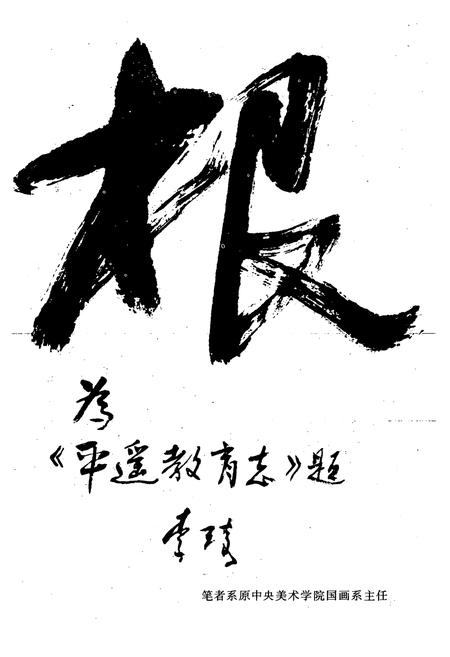 根
为
《平遥教育志》题
李琦
笔者系原中央美术学院国画系主任